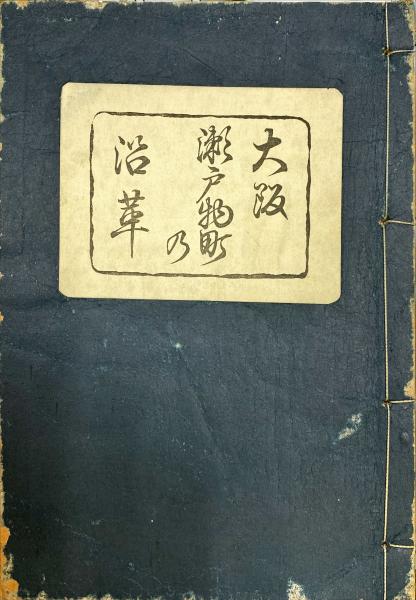 大阪
瀬戸物町
乃
沿革